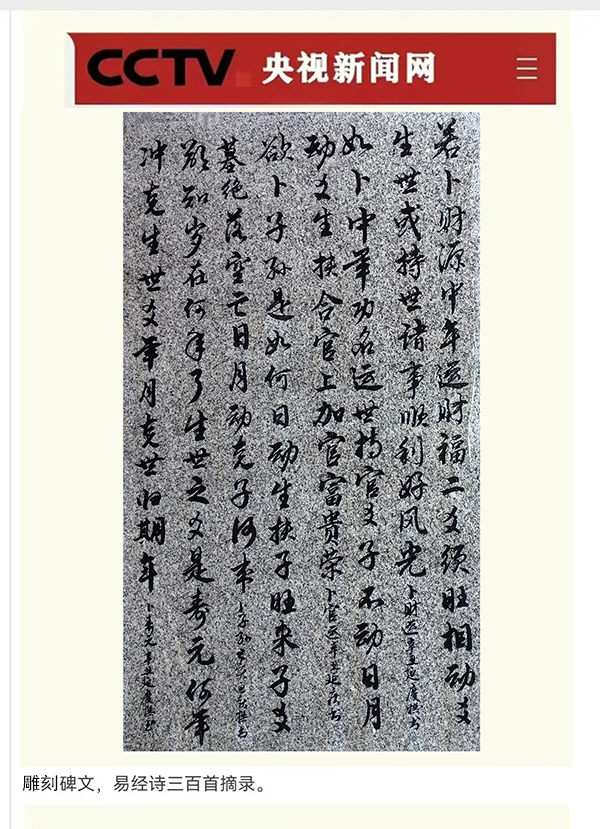 CCTV 央视新闻网
若卜财源中年运财福二爻须旺相动爻
生世或持世诸事顺利好风光 卜财运
如卜中年功名运世持官爻子不动日月
动爻生扶合官上加官富贵荣 卜官运
欲卜子孙是如何日动生扶子旺来子爻
墓绝落空亡日月动克子何来
欲知岁在何年了生世之爻是寿元何年
冲克生世爻年月克世归期年
雕刻碑文，易经诗三百首摘录。